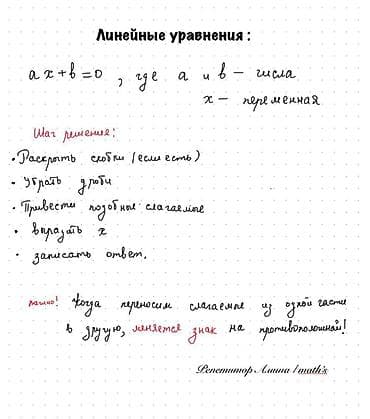 Линейные уравнения:
ax+b=0, где a и b – числа
x – переменная
Шаг решения:
• Раскрыть скобки (если есть)
• Убрать дроби
• Привести подобные слагаемые
• выразить x
• записать ответ.
Важно! Когда переносим слагаемые из одной части
в другую, меняется знак на противоположный!
Репетитор Алина /math's